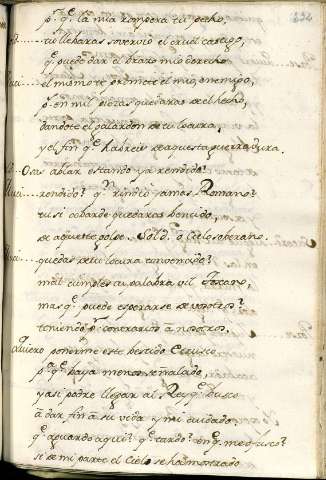 232
pr q̃ la mia romperá tu pecho,
llebarás sovervio el cruel castigo,
q̃ puedo dar el brazo mio derecho
el mismo te promete el mio, enemigo,
pr en mil piezas quedaras deshecho,
dandote el galardon de tu locura,
y el fin q̃ habreis de aquesta guerra dura.
Osas ablar estando ya rendido?
rendido? q̃n rindió jamas Romano?
tu si cobarde quedarás bencido,
de aqueste golpe. Sold. o Cielo soberano.
quedas de tu locura convencido?
mal cumples tu palabra vil Toscano,
mas q̃ puede esperarse de vosotros?
teniendo pr contrarios a nosotros.
Quiero ponerme este bestido Etrusco
pr q̃ baya menos señalado,
y asi podre llegar al Rey q̃ busco
a dar fin a su vida y mi cuidado,
q̃ aguardo aqui? q̃ tardo? en q̃ me ofusco?
si de mi parte el Cielo se ha mostrado